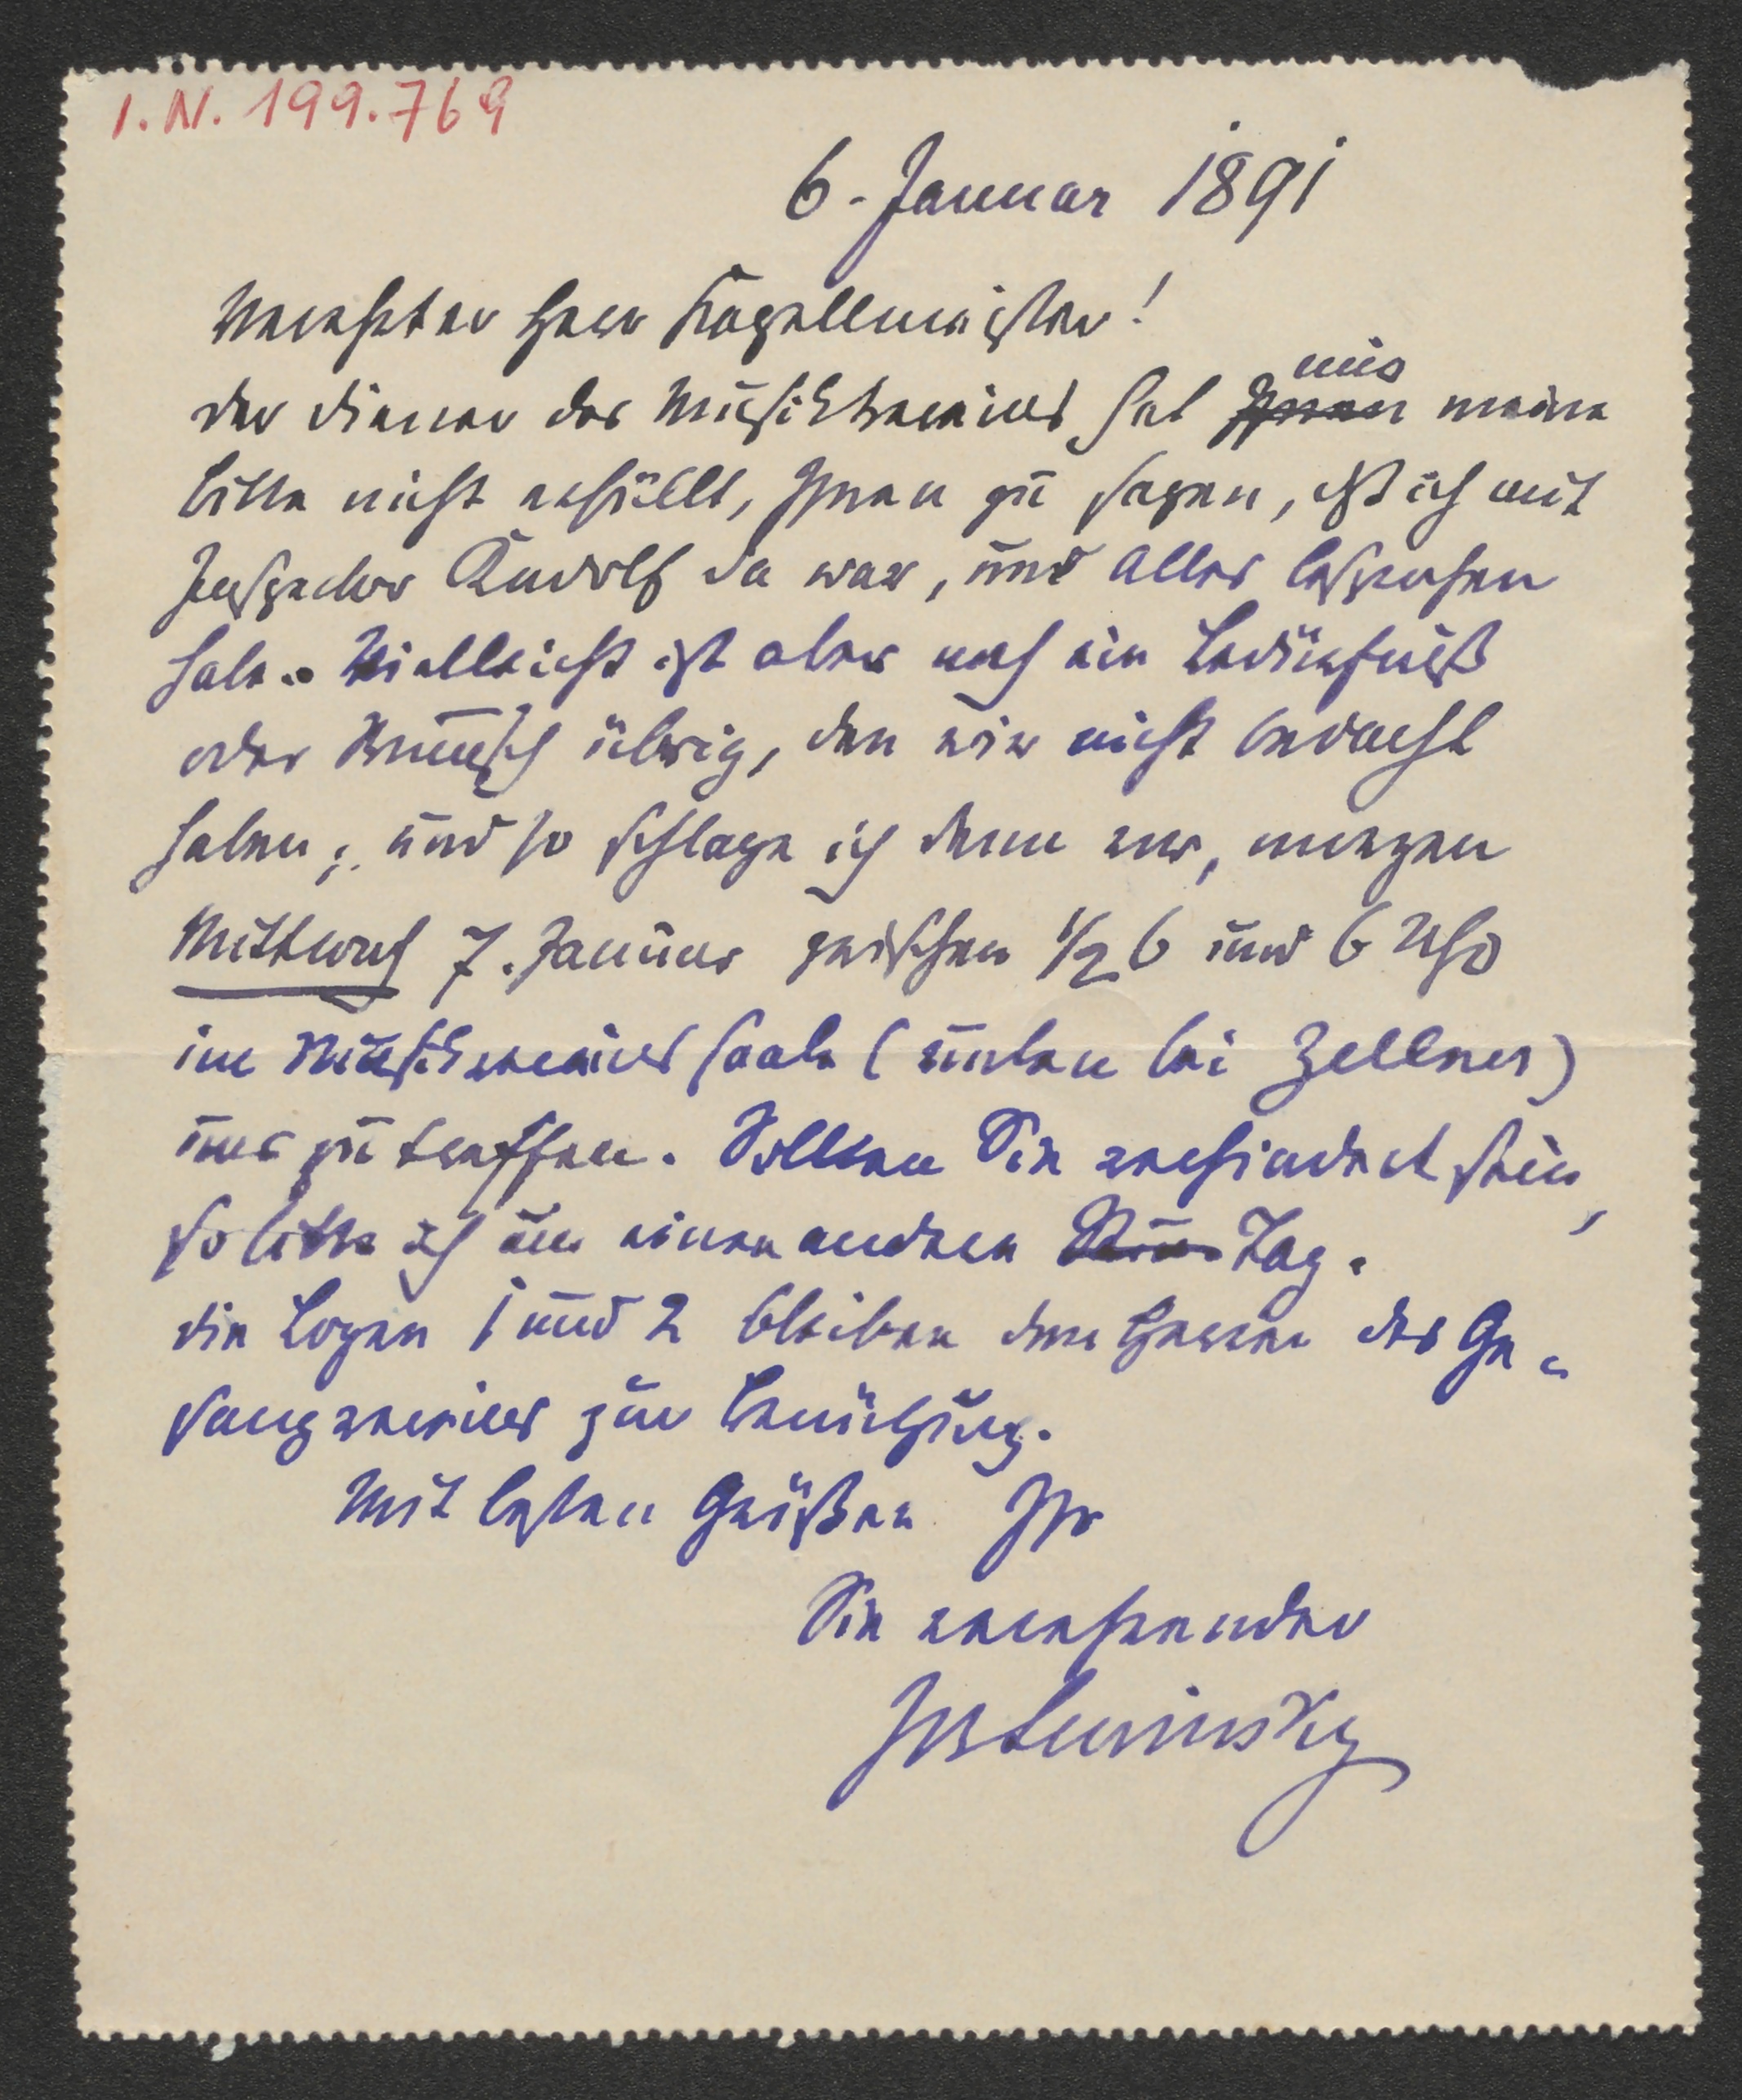 I.N. 199.769
6. Januar 1891
Verehrter Herr Kapellmeister!
der Diener des Musikvereines hat mir meine
bitte nicht erfüllt, Ihnen zu sagen, daß ich mit
Inspector Rudolf da war, und alles besprochen
habe. Vielleicht ist aber noch ein Bedürfniß
oder Wunsch übrig, den wir nicht bedacht
haben; und so schlage ich denn vor, morgen
Mittwoch 7. Januar zwischen ½ 6 und 6 Uhr
im Musikvereinssaale (unten bei Zellner)
uns zu treffen. Sollten Sie verhindert sein,
so bitte ich um einen andren Tag.
die Logen 1 und 2 bleiben den Herren des Ge-
sangvereines zur Benützung.
Mit besten Grüßen Ihr
Sie verehrender
JosLewinsky